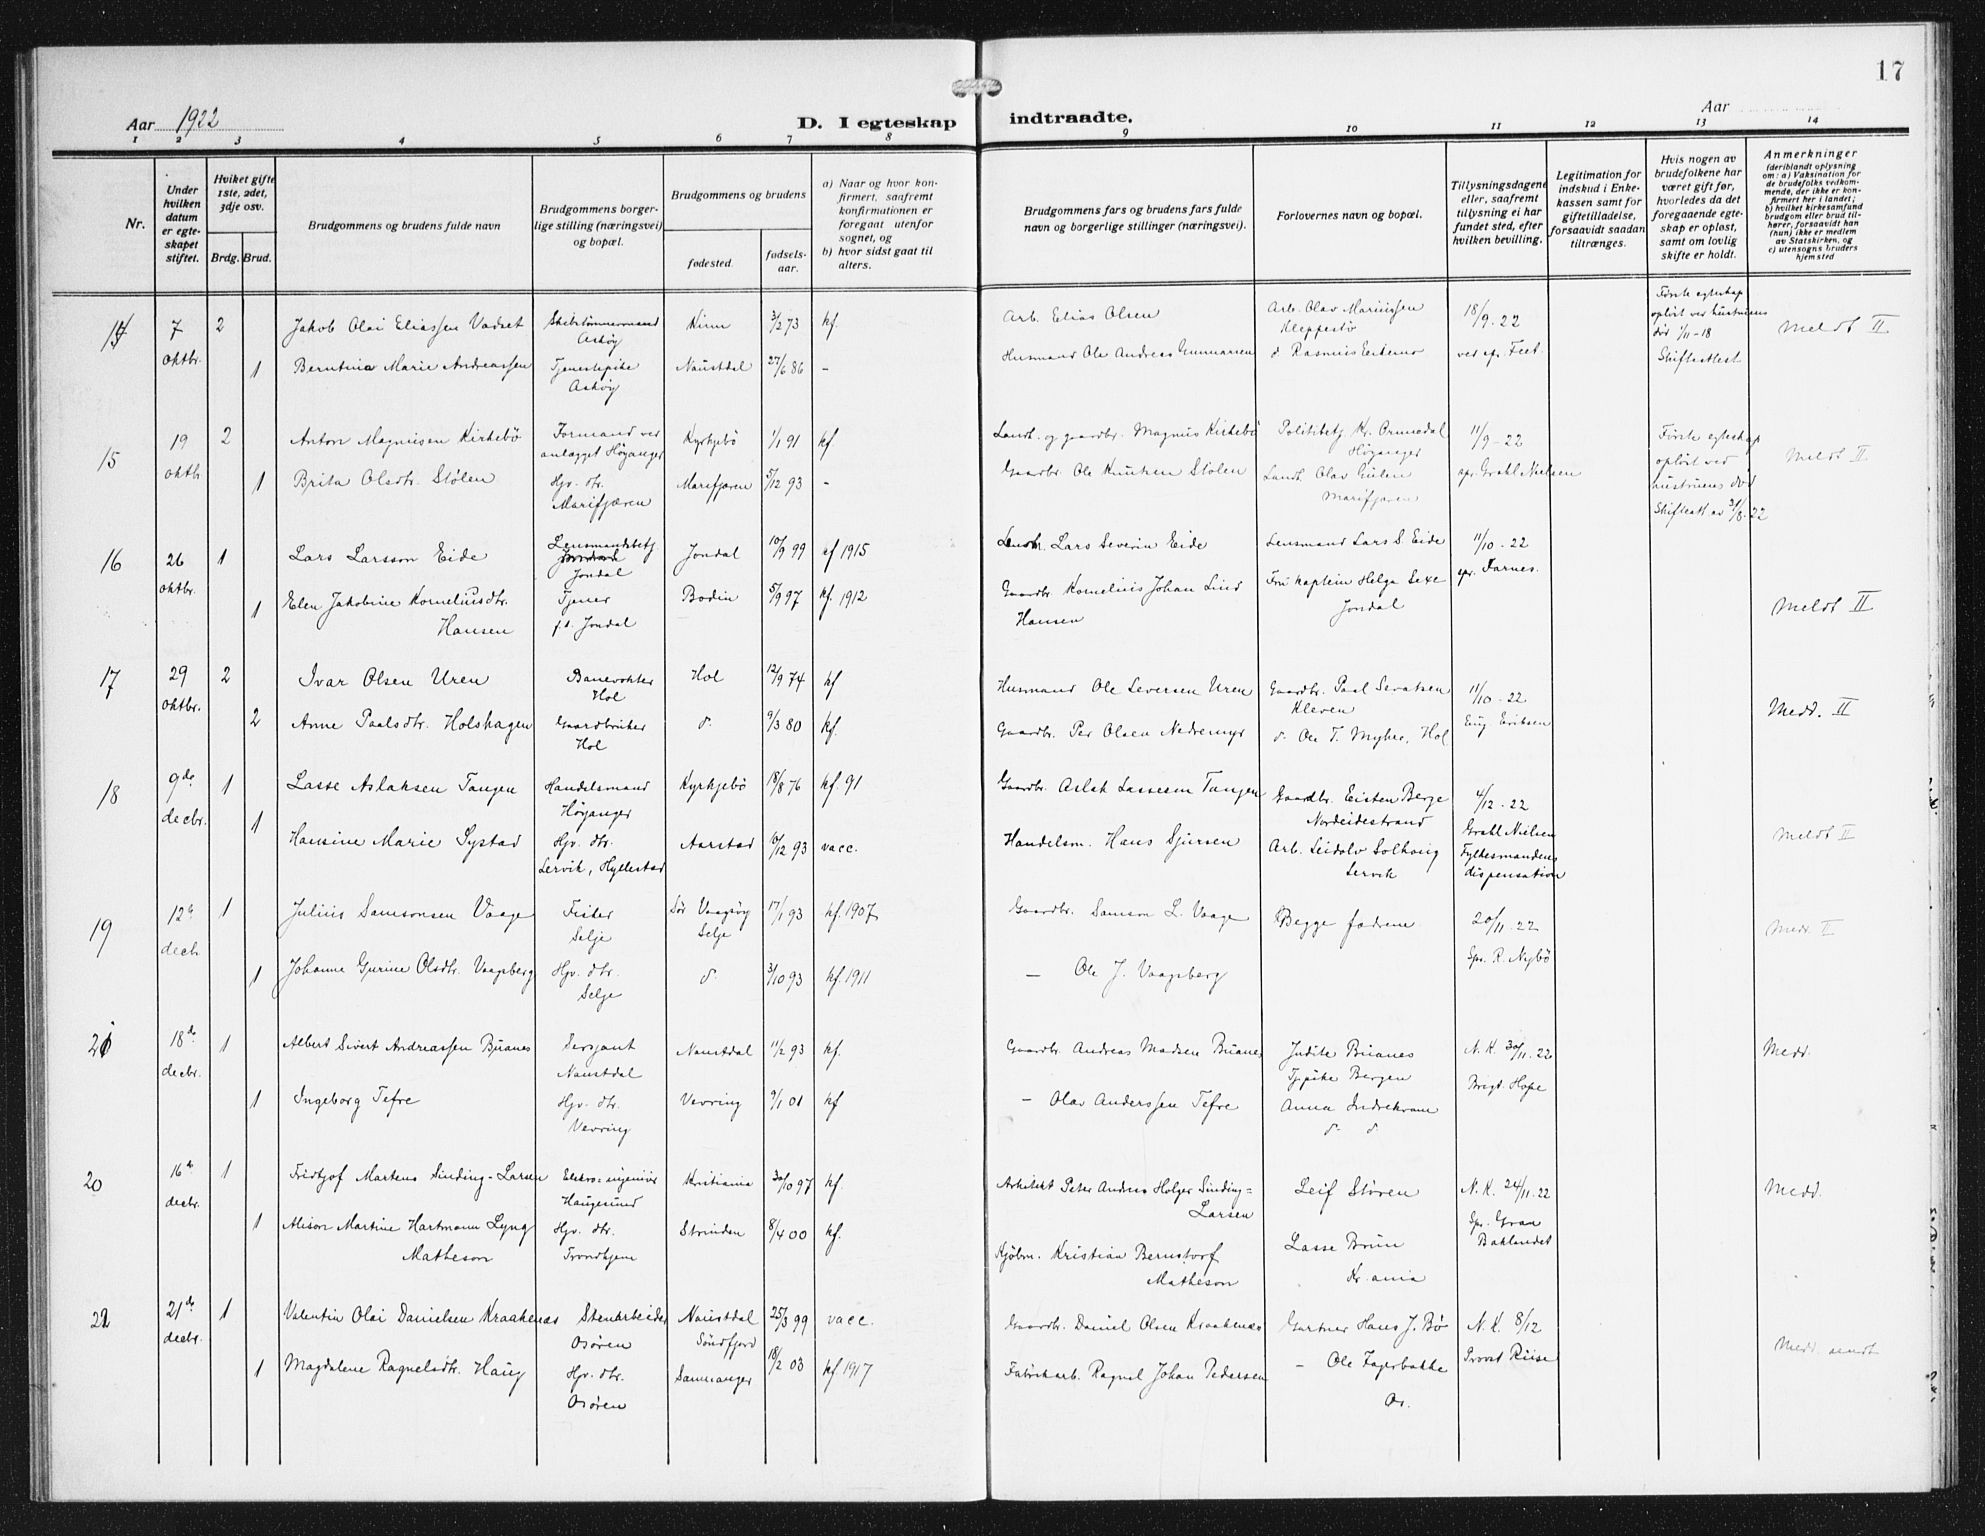 17
Aar 1922
D. I egteskap indtraadte.
Aar
1 2 3 4 5 6 7 8 9 10 11 12 13 14
Nr.
Under hvilken datum er egteskapet stiftet.
Hviket gifte 1ste, 2det, 3dje osv.
Brdg. Brud.
Brudgommens og brudens fulde navn
Brudgommens borgerlige stilling (næringsvei) og bopæl.
Brudgommens og brudens
fødested.
fødselsaar.
a) Naar og hvor konfirmert, saafremt konfirmationen er foregaat utenfor sognet, og
b) hvor sidst gaat til alters.
Brudgommens fars og brudens fars fulde navn og borgerlige stillinger (næringsvei).
Forlovernes navn og bopæl.
Tillysningsdagene eller, saafremt tillysning ei har fundet sted, efter hvilken bevilling.
Legitimation for indskud i Enkekassen samt for giftetilladelse, forsaavidt saadan tiltrænges.
Hvis nogen av brudefolkene har været gift før, hvorledes da det foregaaende egteskap er opløst, samt om lovlig skifte er holdt.
Anmerkninger (deriblandt oplysning om: a) Vaksination for de brudefolks vedkommende, der ikke er konfirmert her i landet; b) hvilket kirkesamfund brudgom eller brud tilhører, forsaavidt han (hun) ikke er medlem av Statskirken, og c) utensogns bruders hjemsted
14 7 oktbr. 2 Jakob Olai Eliassen Vadset Skibstømmermand Askøy Kinn 3/2 73 kf Arb. Elias Olsen Arb. Olav Mariussen Kleppestø 18/9-22 Første egteskap opløst ved hustruens død 1/11-18 Skifteattest Meldt II
1 Berntina Marie Andreassen Tjenestepike Askøy Naustdal 27/6 86 - Husmand Ole Andreas Gunnarsen d. Rasmus ved spr.
15 19 oktbr 2 Anton Magnusen Kirkebö Formand ved anlægget Höyanger Kyrkjebö 1/1 91 kf Landh. og gaardbr. Magnus Kirkebö Politibetj. Kr. Ormedal Höyanger 11/9-22 Første egteskap opløst ved hustruens död Skifteatt av 31/8-22 Meldt II
1 Brita Olsdtr. Stölen Hjv. dtr. Marifjæren Marifjæren 5/12 93 - Gaardbr. Ole Knutsen Stölen Landh. Olav Gulen Marifjæren spr. Grahl Nielsen
16 26 oktbr. 1 Lars Larsson Eide Lensmandsbetj. Jondal Jondal 10/9 99 kf 1915 Lensm. Lars Severin Eide Lensmand Lars S. Eide 11/10-22
1 Elen Jakobine Korneliusdtr. Hansen Tjener f.t. Jondal Bodin 5/9 97 kf. 1912 Gaardbr. Kornelius Johan Lind Hansen Fru kaptein Helga Sexe Jondal spr. Farnes. Meldt II
17 29 oktbr. 2 Ivar Olsen Uren Banevokter Hol Hol 12/9 74 kf Husmand Ole Seversen Uren Gaardbr. Paal Sevatsen Kleven 11/10-22 Medd. II
2 Anne Paalsdtr. Holshagen Gaardbruker Hol d. 9/3 80 kf. Gaardbr. Per Olsen Nedremyr d. Ole T. Myhre, Hol Eug. Eriksen
18 9de decbr. 1 Lasse Aslaksen Tangen Handelsmand Höyanger Kyrkjebö 18/8 76 kf. 91 Gaardbr. Aslak Lassesen Tangen Gaardbr. Eisten Berge Nordeidestrand 4/12-22
1 Hansine Marie Systad Hjv. dtr. Lervik, Hyllestad Aarstad 6/12 93 vacc. Handelsm. Hans Sjursen Arb. Leidolv Solhaug Lervik Grahl Nielsen Fylkesmandens dispensation Meldt II
19 12te decb. 1 Julius Samsonsen Vaage Fisker Selje Sör Vaagsöy Selje 17/1 93 kf. 1907 Gaardbr. Samson L. Vaage Begge fædrene 20/11-22 Medd. II
1 Johanne Gurine Olsdtr. Vaagsberg Hjv. dtr. Selje d. 3/10 93 kf. 1911 — Ole J. Vaagsberg Spr. R. Nybö
21 18de decbr. 1 Albert Sivert Andreassen Buanes Sersjant Naustdal Naustdal 11/2 93 kf. Gaardbr. Andreas Madsen Buanes Judite Buanes Tjpike Bergen N.K. 30/11-22 Medd.
1 Ingeborg Tefre Hjv. dtr. Vevring Vevring 9/1 01 kf — Olav Anderssen Tefre Anna Indrekvam d. d. Brigd. Hope
20 16de decbr. 1 Fridtjof Martens Sinding-Larsen Elektro-ingeniör Haugesund Kristiania 30/10 97 kf. Arkitekt Peter Andreas Holger Sinding-Larsen Leif Stören N.K. 24/11-22 Medd.
1 Alison Martine Hartmann Lyng Matheson Hjv. dtr. Trondhjem Strinden 8/4 00 kf. Kjöbm. Kristian Bernstorf Matheson Lasse Brun Kr.ania Spr. Gran Baklandet
22 21de decbr. 1 Valentin Olai Danielsen Kraakenæs Stenarbeider Osören Naustdal Söndfjord 25/3 99 vacc. Gaardbr. Daniel Olsen Kraakenæs Gartner Hans J. Bö N.K. 8/12
1 Magdalene Ragnelsdtr. Haug Hjv. dtr. Osören Samnanger 18/2 03 kf 1917 Fabrikarb. Ragnel Johan Pedersen — Ole Fagerbakke Os. Provst Riise Medd. sendt